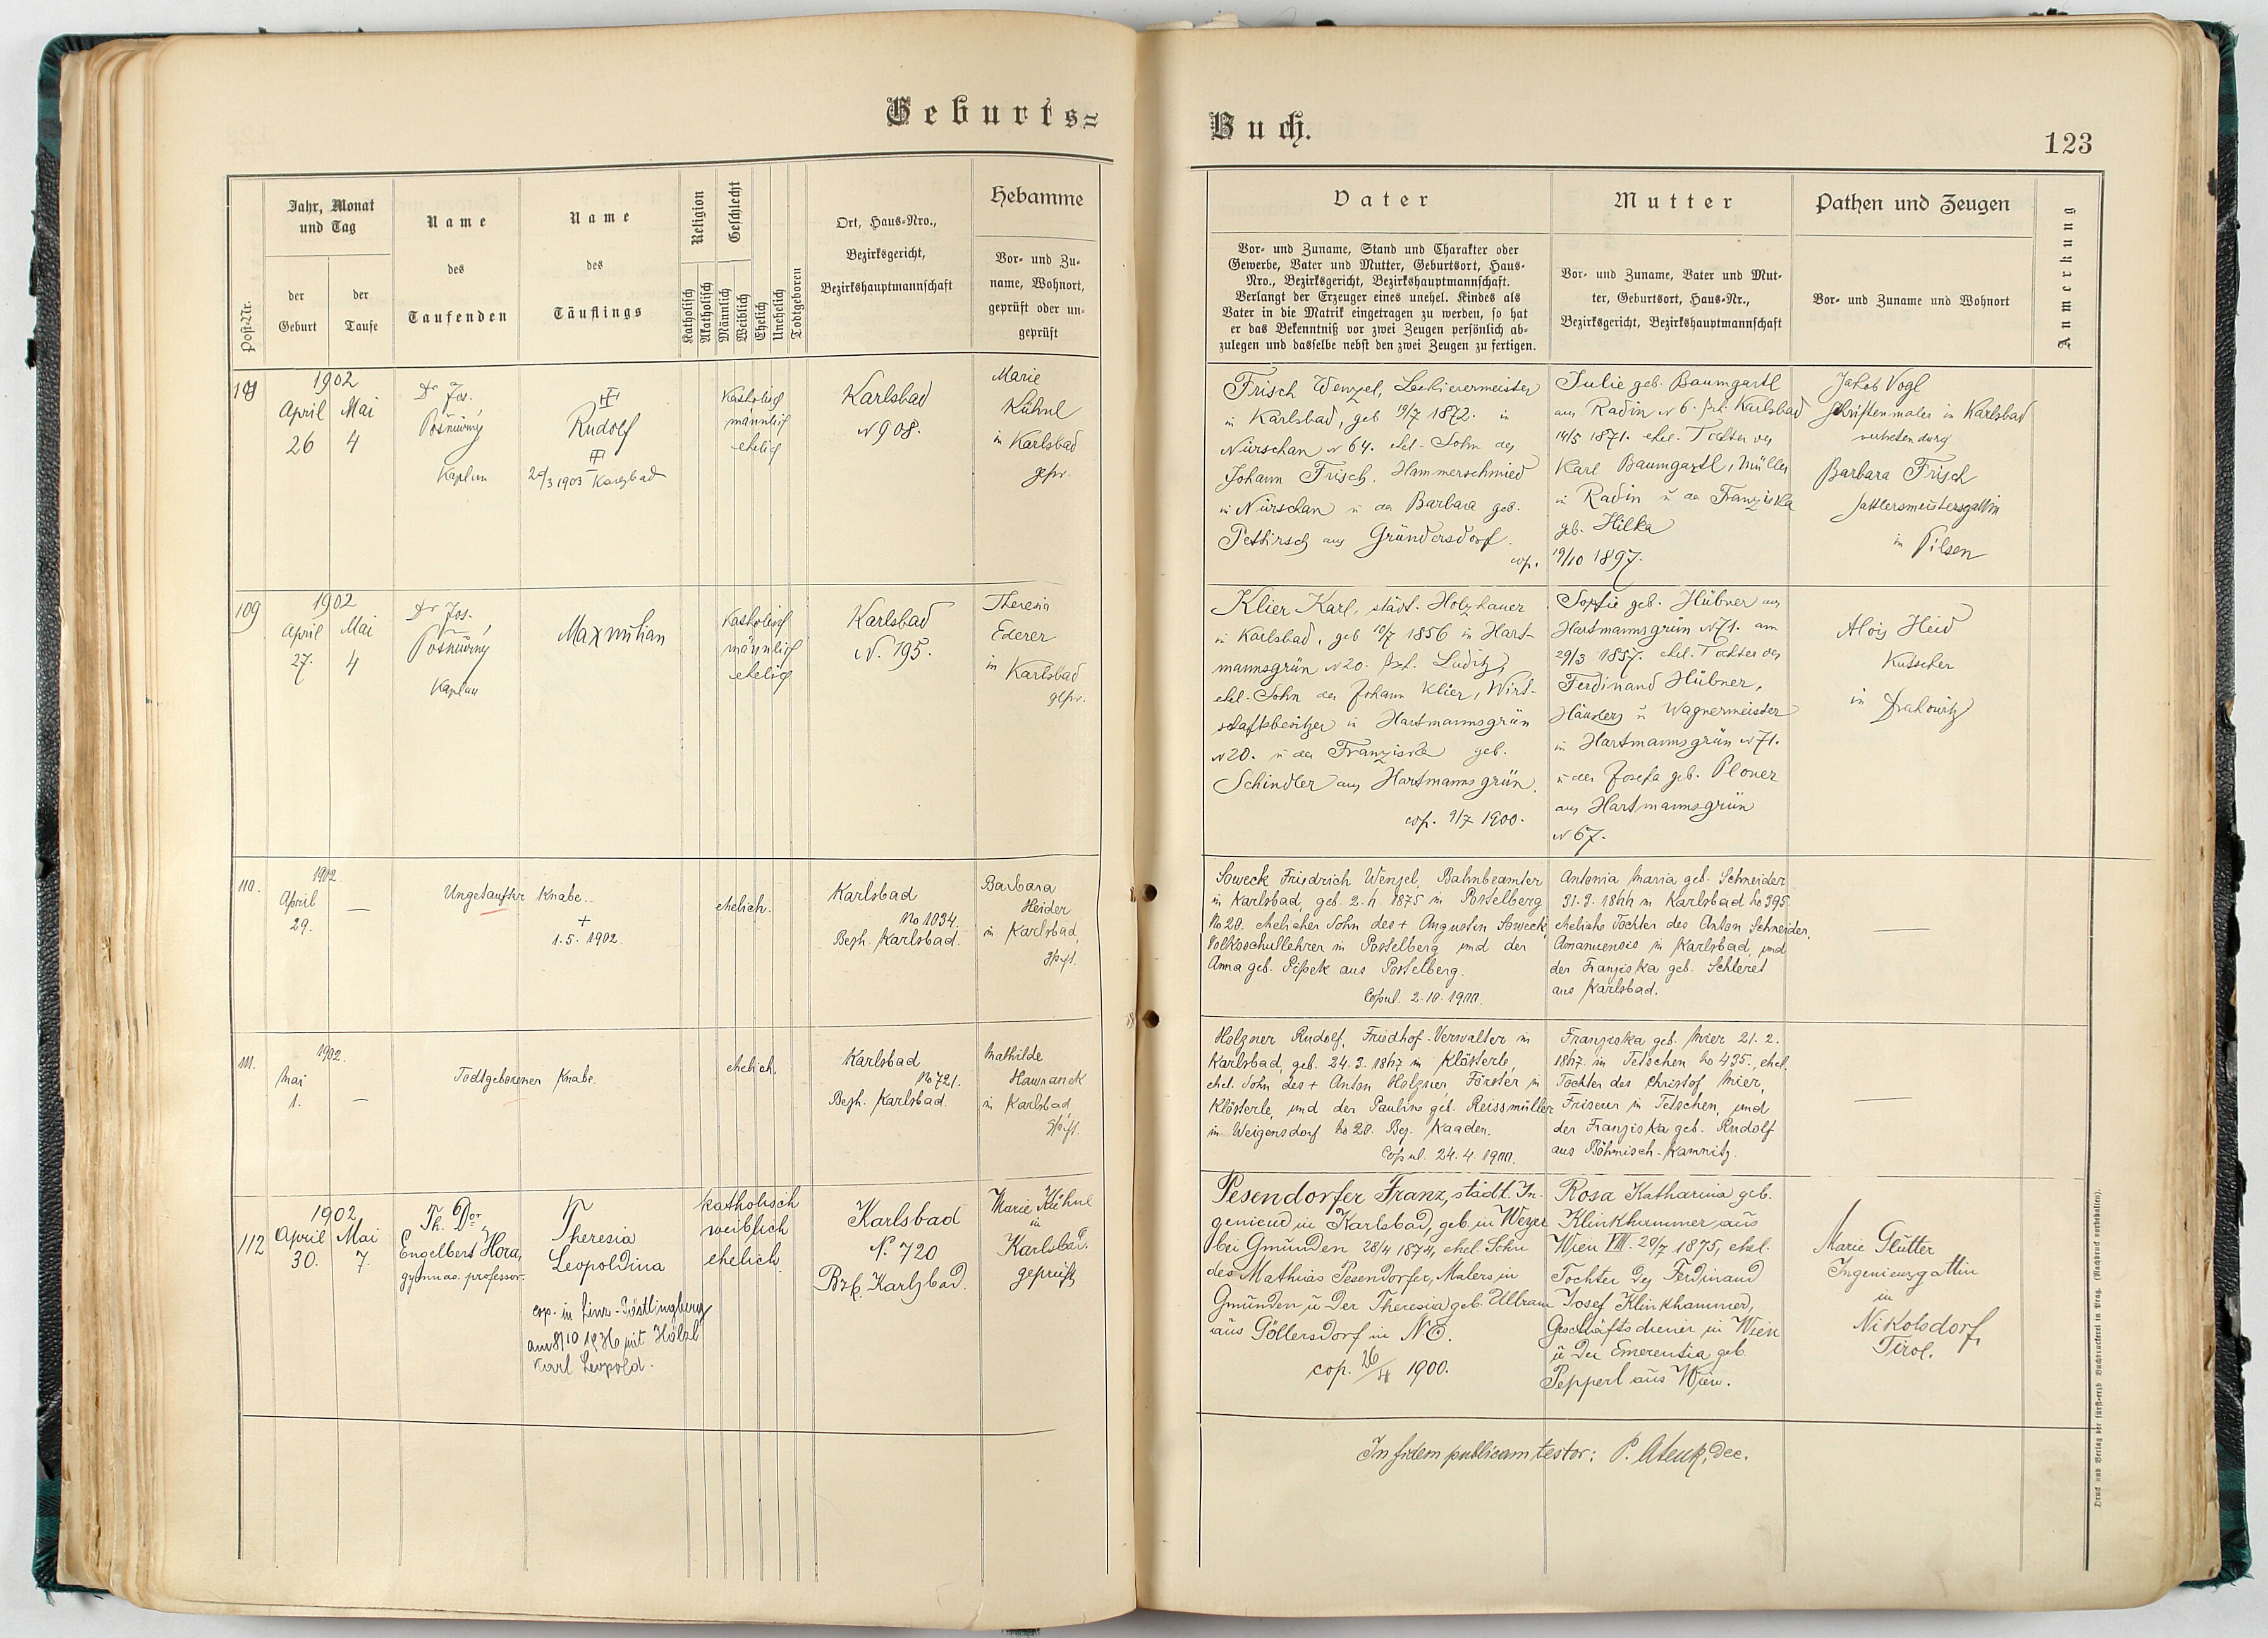 Geburts=
Post-Nr.
Jahr, Monat
und Tag
der
Geburt
der
Taufe
Name
des
Taufenden
Name
des
Täuflings
Religion
Katholisch
Akatholisch
Geschlecht
Männlich
Weiblich
Ehelich
Unehelich
Todtgeboren
Ort, Haus-Nro.,
Bezirksgericht,
Bezirkshauptmannschaft
Hebamme
Vor- und Zu-
name, Wohnort,
geprüft oder un-
geprüft
108
1902
April
26
Mai
4
Dr Jos.
Kaplan
Rudolf
1903 Karlsbad
Katholisch
männlich
ehelich
Karlsbad
N 908.
Marie
Kühnl
in Karlsbad
gepr.
109
1902
April
27.
Mai
4
Dr Jos.
Kaplan
Maxmilian
Katholisch
männlich
ehelich
Karlsbad
N. 795.
Theresia
Ederer
in
Karlsbad
gepr.
110.
1902.
April
29.
—
Ungetaufter Knabe.
+
1.5.1902.
ehelich.
Karlsbad
No 1034.
Bezh. Karlsbad.
Barbara
Heider
in Karlsbad,
gepft.
111.
1902.
Mai
1.
–
Todtgeborener Knabe.
ehelich.
Karlsbad
No 721.
Bezh. Karlsbad.
Mathilde
Hawranek
in Karlsbad,
gepft.
112
1902
April
30.
Mai
7.
Th. Dor
Engelbert Hora,
gymnas. professor.
Theresia
Leopoldina
cop. in Linz - Pöstlingberg
am 8/10 1936 mit Hölzl
Karl Leopold.
katholisch
weiblich
ehelich.
Karlsbad
N. 720
Bzk. Karlsbad.
Marie Kühnl
in
Karlsbad.
geprüft
Buch.
123
Vater
Vor- und Zuname, Stand und Charakter oder
Gewerbe, Vater und Mutter, Geburtsort, Haus-
Nro., Bezirksgericht, Bezirkshauptmannschaft.
Verlangt der Erzeuger eines unehel. Kindes als
Vater in die Matrik eingetragen zu werden, so hat
er das Bekenntniß vor zwei Zeugen persönlich ab-
zulegen und dasselbe nebst den zwei Zeugen zu fertigen.
Mutter
Vor- und Zuname, Vater und Mut-
ter, Geburtsort, Haus-Nr.,
Bezirksgericht, Bezirkshauptmannschaft
Pathen und Zeugen
Vor- und Zuname und Wohnort
Anmerkung
Frisch Wenzel, Lackierermeister
in Karlsbad, geb 19/7 1872. in
Nürschan N 64. ehel. Sohn des
Johann Frisch, Hammerschmied
in Nürschan u. der Barbara geb.
Pettirsch aus Gründersdorf.
cop.
Julie geb. Baumgartl
aus Radin N 6. Karlsbad
14/5 1871. ehel. Tochter des
Karl Baumgartl, Müller
in Radin u. der Franziska
geb. Hilka
19/10 1897.
Jakob Vogl
Schriftenmaler in Karlsbad
vertreten durch
Barbara Frisch
Sattlersmeistersgattin
in Pilsen
Klier Karl, städt. Holzhauer
in Karlsbad, geb 10/7 1856 in Hart-
mannsgrün N 20. Luditz,
ehel. Sohn des Johann Klier, Wirt-
schaftsbesitzer in Hartmannsgrün
N 20. u. der Franziska geb.
Schindler aus Hartmannsgrün.
cop. 9/7 1900.
Sophie geb. Hübner aus
Hartmannsgrün N 71. am
29/3 1857. ehel. Tochter des
Ferdinand Hübner,
Häuslers u. Wagnermeister
in Hartmannsgrün N 71.
u. der Josefa geb. Ploner
aus Hartmannsgrün
N 67.
Alois Heid
Kutscher
in Drahowitz
Soweck Friedrich Wenzel, Bahnbeamter
in Karlsbad, geb. 1875 in Postelberg
No 20. ehelicher Sohn des + Augustin Soweck,
Volksschullehrer in Postelberg und der
Anna geb. Pißek aus Postelberg.
Copul. 2.10.1900.
Antonia Maria geb. Schneider
in Karlsbad No 395.
eheliche Tochter des Anton Schneider,
Amanuensis in Karlsbad, und
der Franziska geb. Schleret
aus Karlsbad.
Holzner Rudolf, Friedhof-Verwalter in
Karlsbad, geb. 24.3. in Klösterle,
ehel. Sohn des + Anton Holzner, Förster in
Klösterle, und der Pauline geb. Reissmüller
in Weigensdorf No 20. Bez. Kaaden.
Copul. 24.4.1900.
Franziska geb. Mier 21.2.
in Tetschen No 435., ehel.
Tochter des Christof Mier,
Friseur in Tetschen, und
der Franziska geb. Rudolf
aus Böhmisch-Kamnitz.
Pesendorfer Franz, städt. In-
genieur in Karlsbad, geb. in Weyer
bei Gmunden 28/4 1874, ehel. Sohn
des Mathias Pesendorfer, Malers, in
Gmunden u. der Theresia geb. Ullram
aus Göllersdorf in N.Ö.
cop. 26/4 1900.
Rosa Katharina geb.
Klinkhammer aus
Wien VIII. 20/7 1875, ehel.
Tochter des Ferdinand
Josef Klinkhammer,
Geschäftsdiener in Wien
u. der Emerentia geb.
Pepperl aus Wien.
Marie Glütter
Ingenieursgattin
in
Nikolsdorf,
Tirol.
In fidem publicam testor: P. dec.
Druck und Verlag der fürst-erzb. Buchdruckerei in Prag. (Nachdruck vorbehalten).